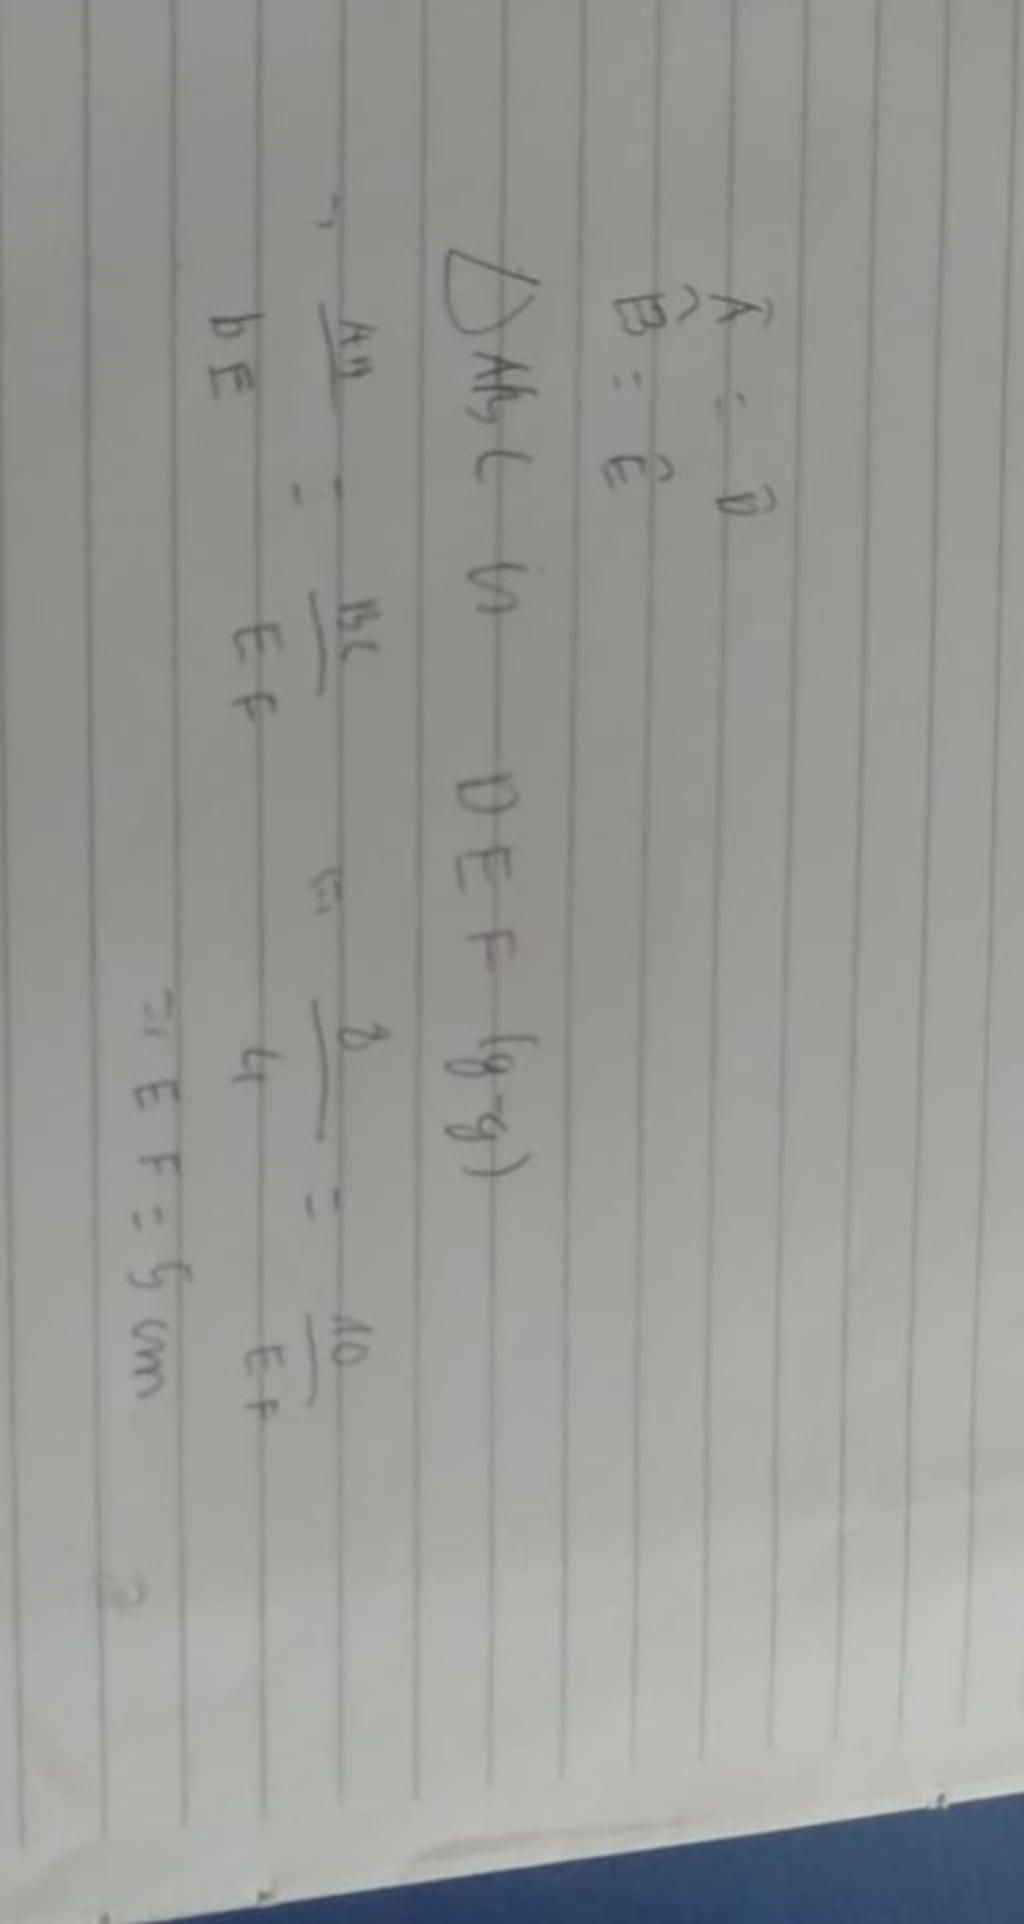 Â = D̂
B̂ = Ê
△ABC ᔕ DEF (g-g)
∴ AB/DE = BC/EF = 8/4 = 10/EF
∴ EF = 5 cm